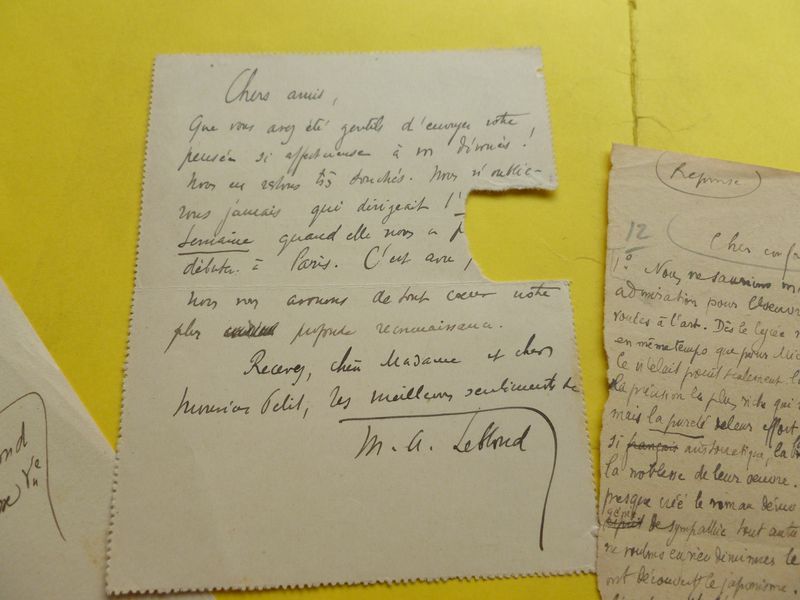 Chers amis,
Que vous avez été gentils d'envoyer votre
pensée si affectueuse à vos dévoués !
Nous en restons très touchés. Nous n'oublie-
rons jamais qui dirigeait l'
Semaine quand elle nous a f
débuter à Paris. C'est avec
nous vous avouons de tout coeur notre
plus profonde reconnaissance.
Recevez, chère Madame et cher
Monsieur Petit, les meilleurs sentiments de
M. A. Leblond
ond
Reponse
12
Cher confr
1° Nous ne saurions m
admiration pour l'oeuvre
voués à l'art. Dès le lycée n
en même temps que pour Mic
Ce n'était point seulement l
la plus riche qui
mais la pureté de leur effort
si français aristocratique, la
la noblesse de leur oeuvre.
presque créé le roman
de sympathie tout autu
ne voulons en rien diminuer le
ont découvert le japonisme.